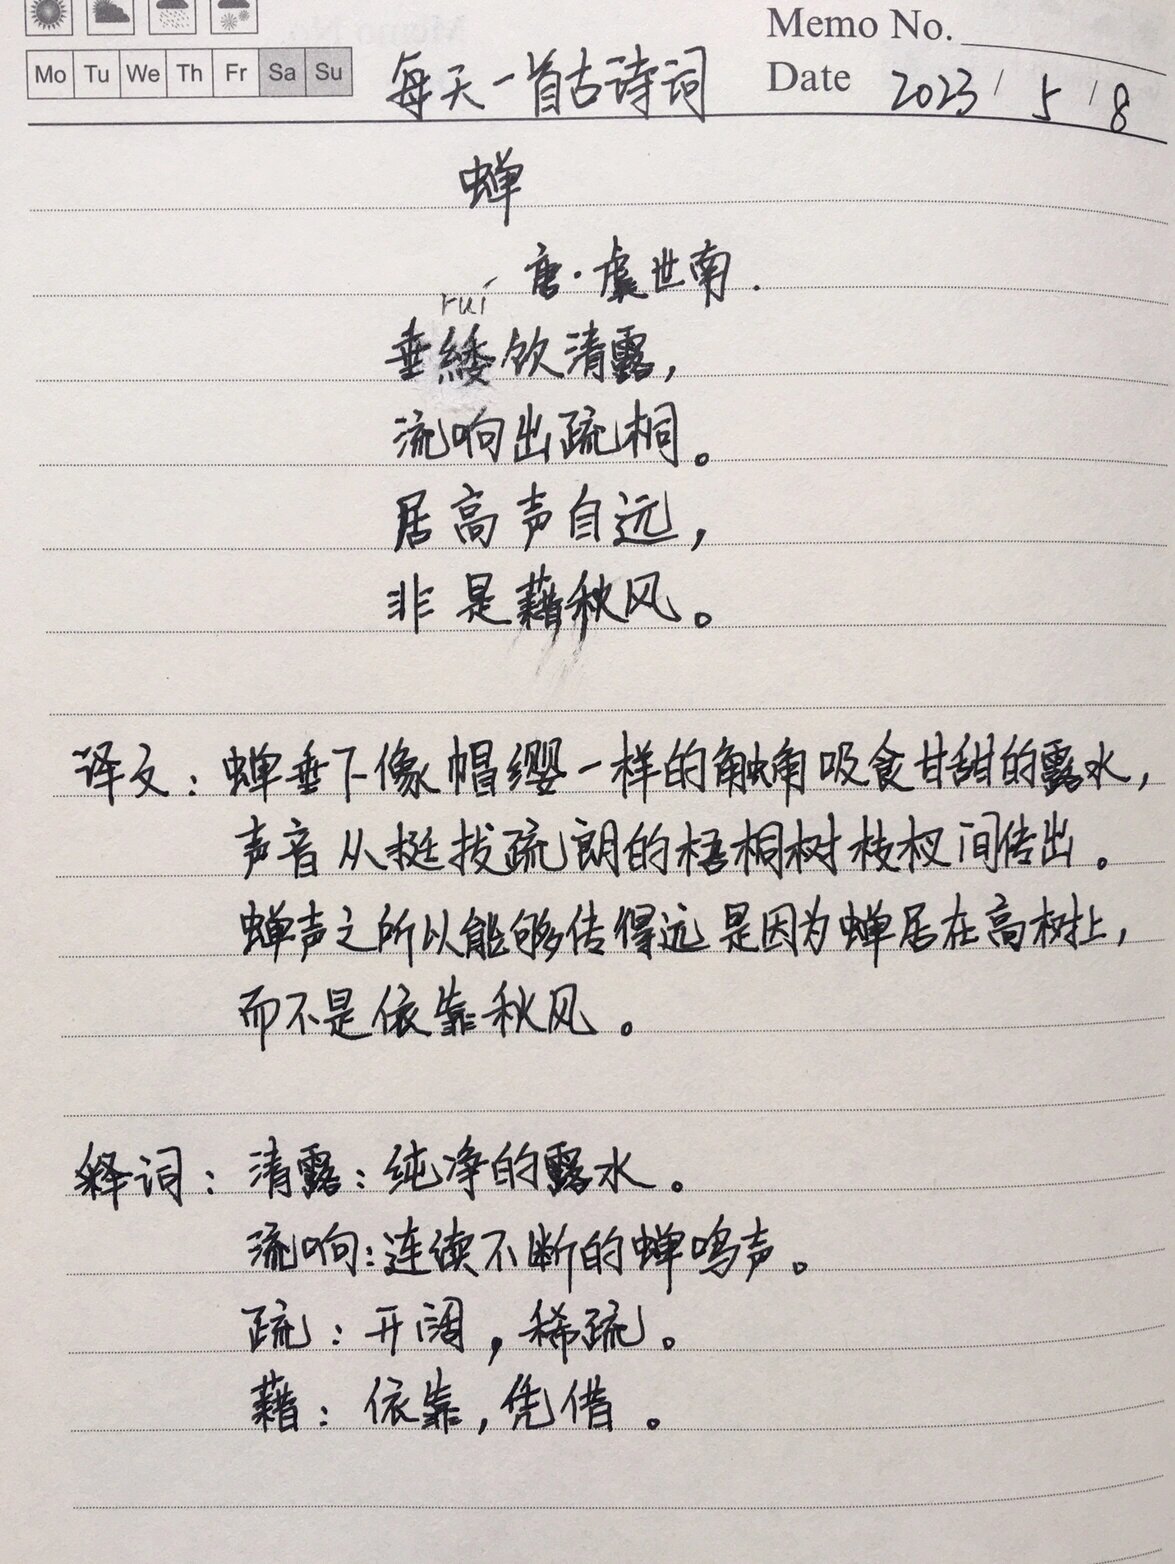 Memo No.
Mo Tu We Th Fr Sa Su
每天一首古诗词
Date 2023/5/8
蝉
唐·虞世南.
ruí
垂緌饮清露，
流响出疏桐。
居高声自远，
非是藉秋风。
译文：蝉垂下像帽缨一样的触角吸食甘甜的露水，
声音从挺拔疏朗的梧桐树枝杈间传出。
蝉声之所以能够传得远是因为蝉居在高树上，
而不是依靠秋风。
释词：清露：纯净的露水。
流响：连续不断的蝉鸣声。
疏：开阔，稀疏。
藉：依靠，凭借。